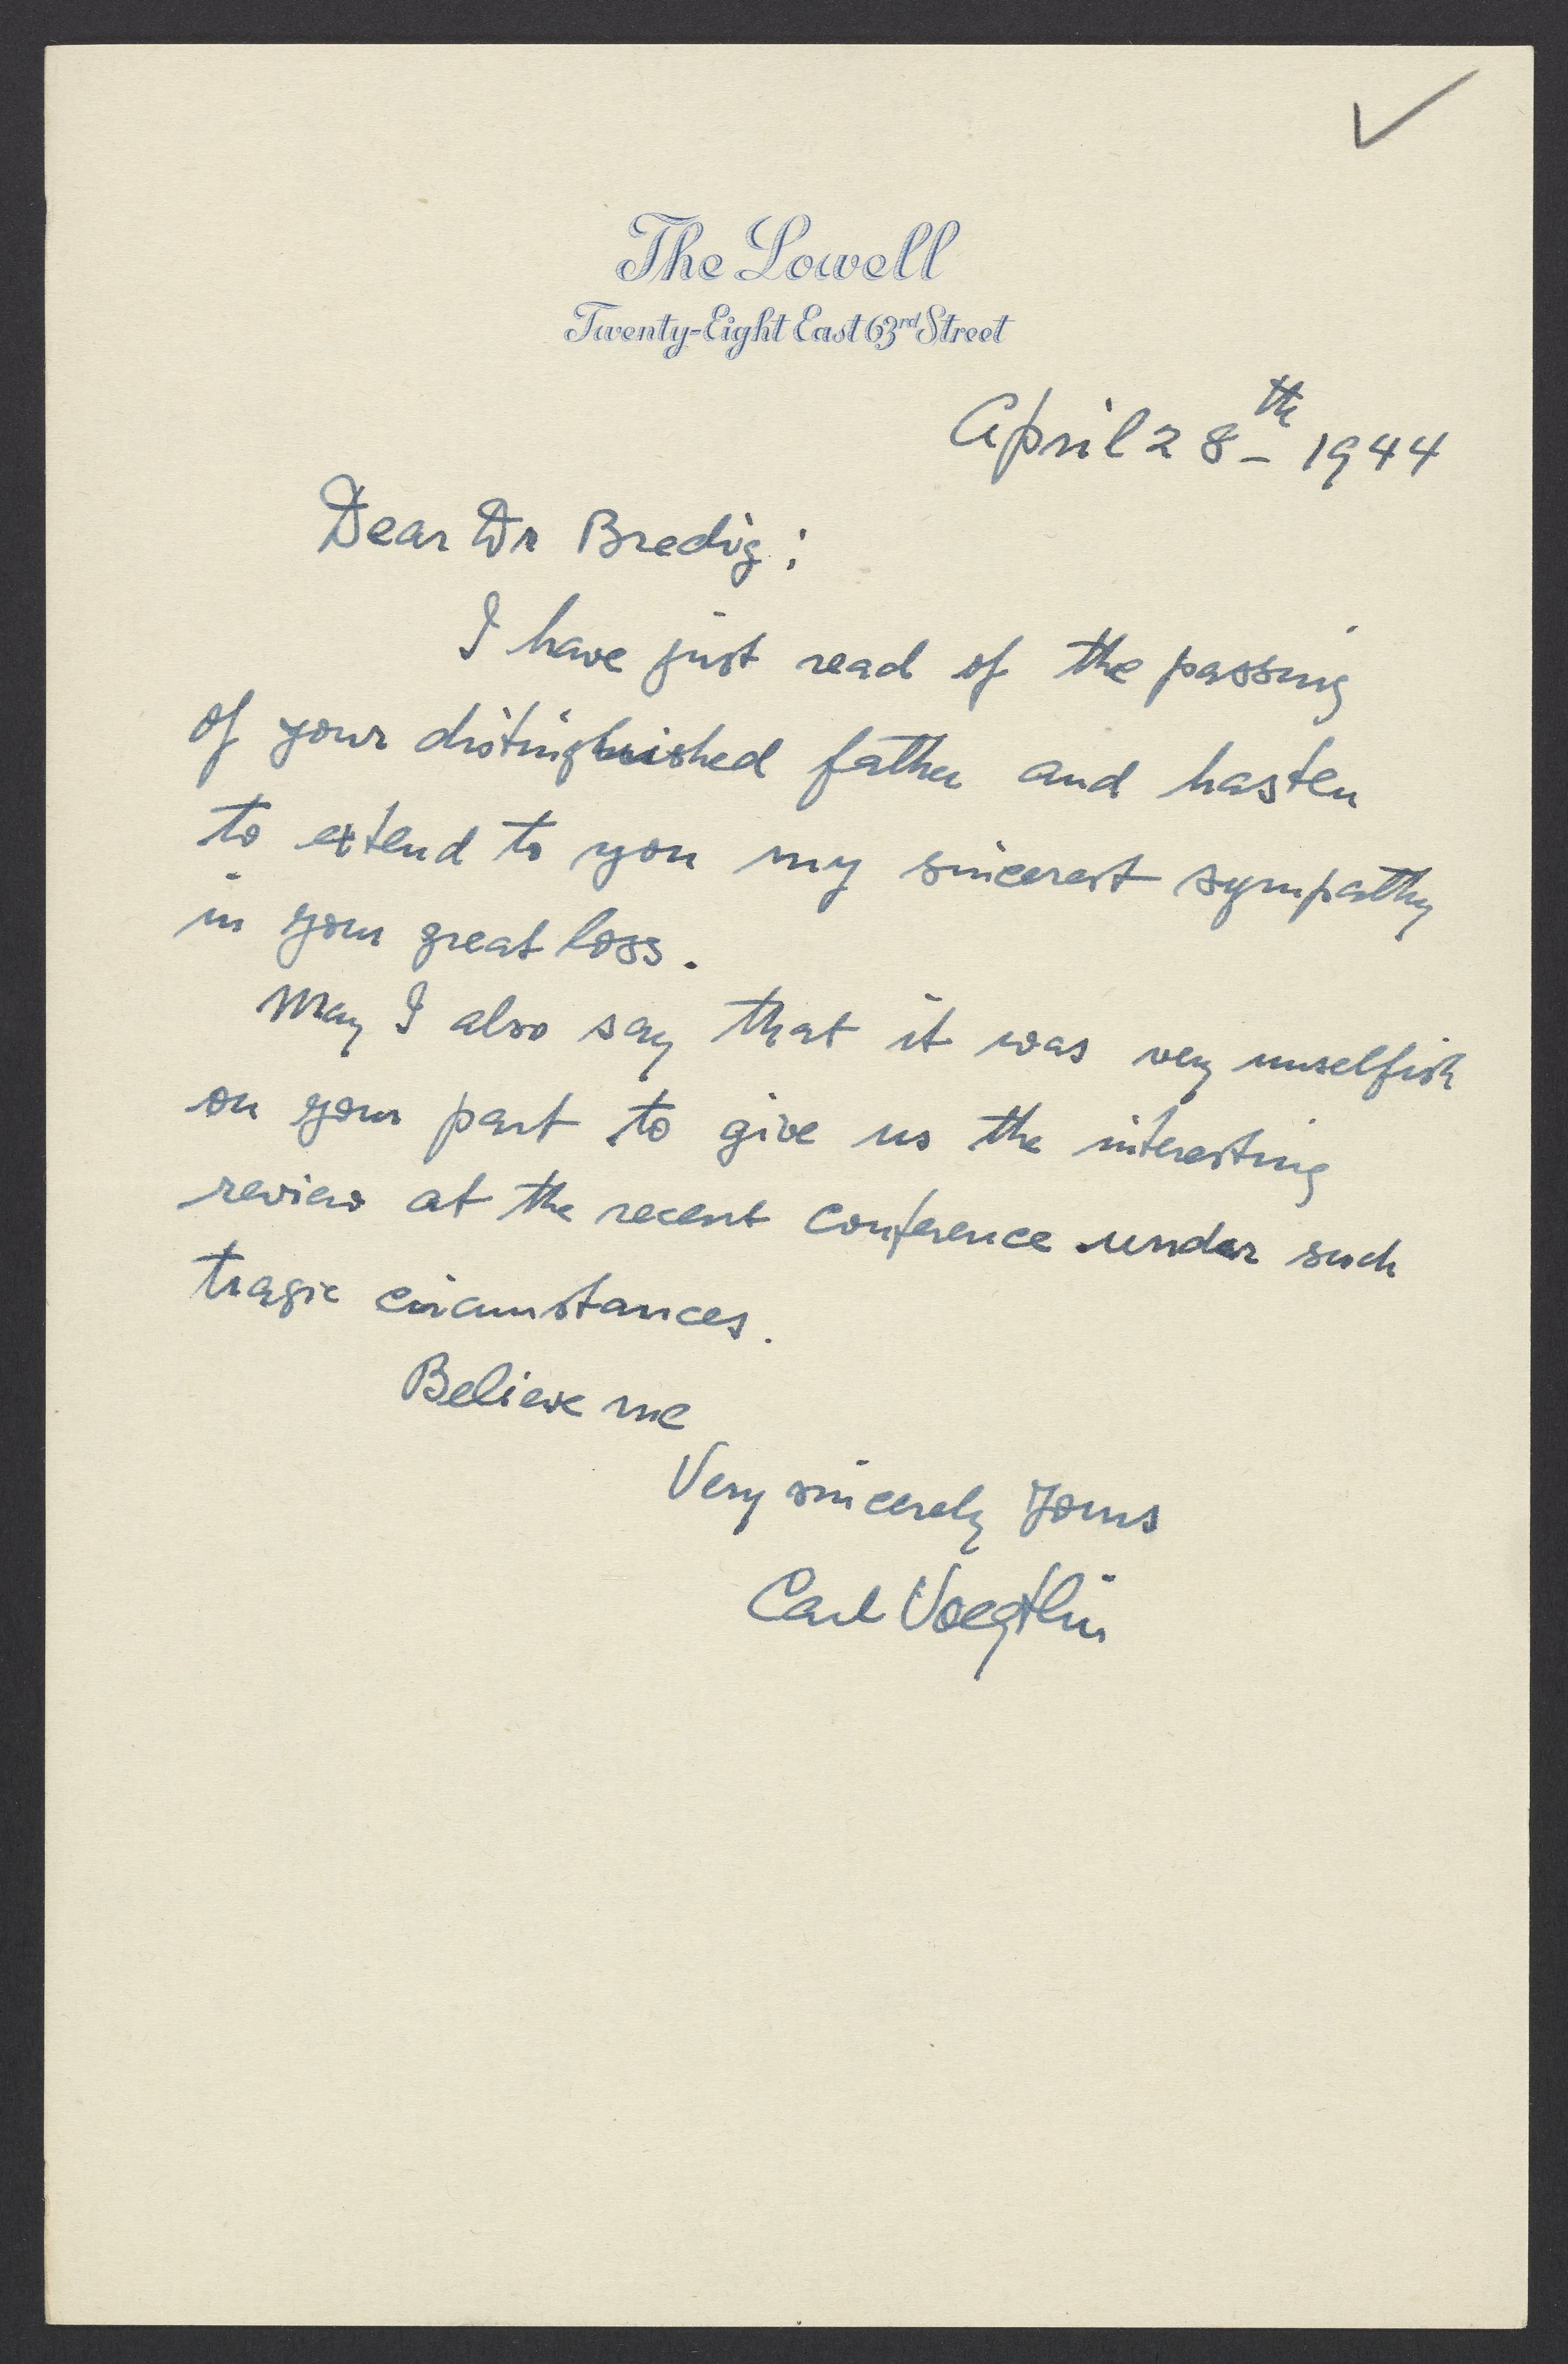 The Lowell
Twenty-Eight East 63rd Street
April 28th 1944
Dear Dr Bredig:
I have just read of the passing
of your distinguished father and hasten
to extend to you my sincerest sympathy
in your great loss.
May I also say that it was very unselfish
on your part to give us the interesting
review at the recent conference under such
tragic circumstances.
Believe me
Very sincerely Yours
Carl Voegtlin